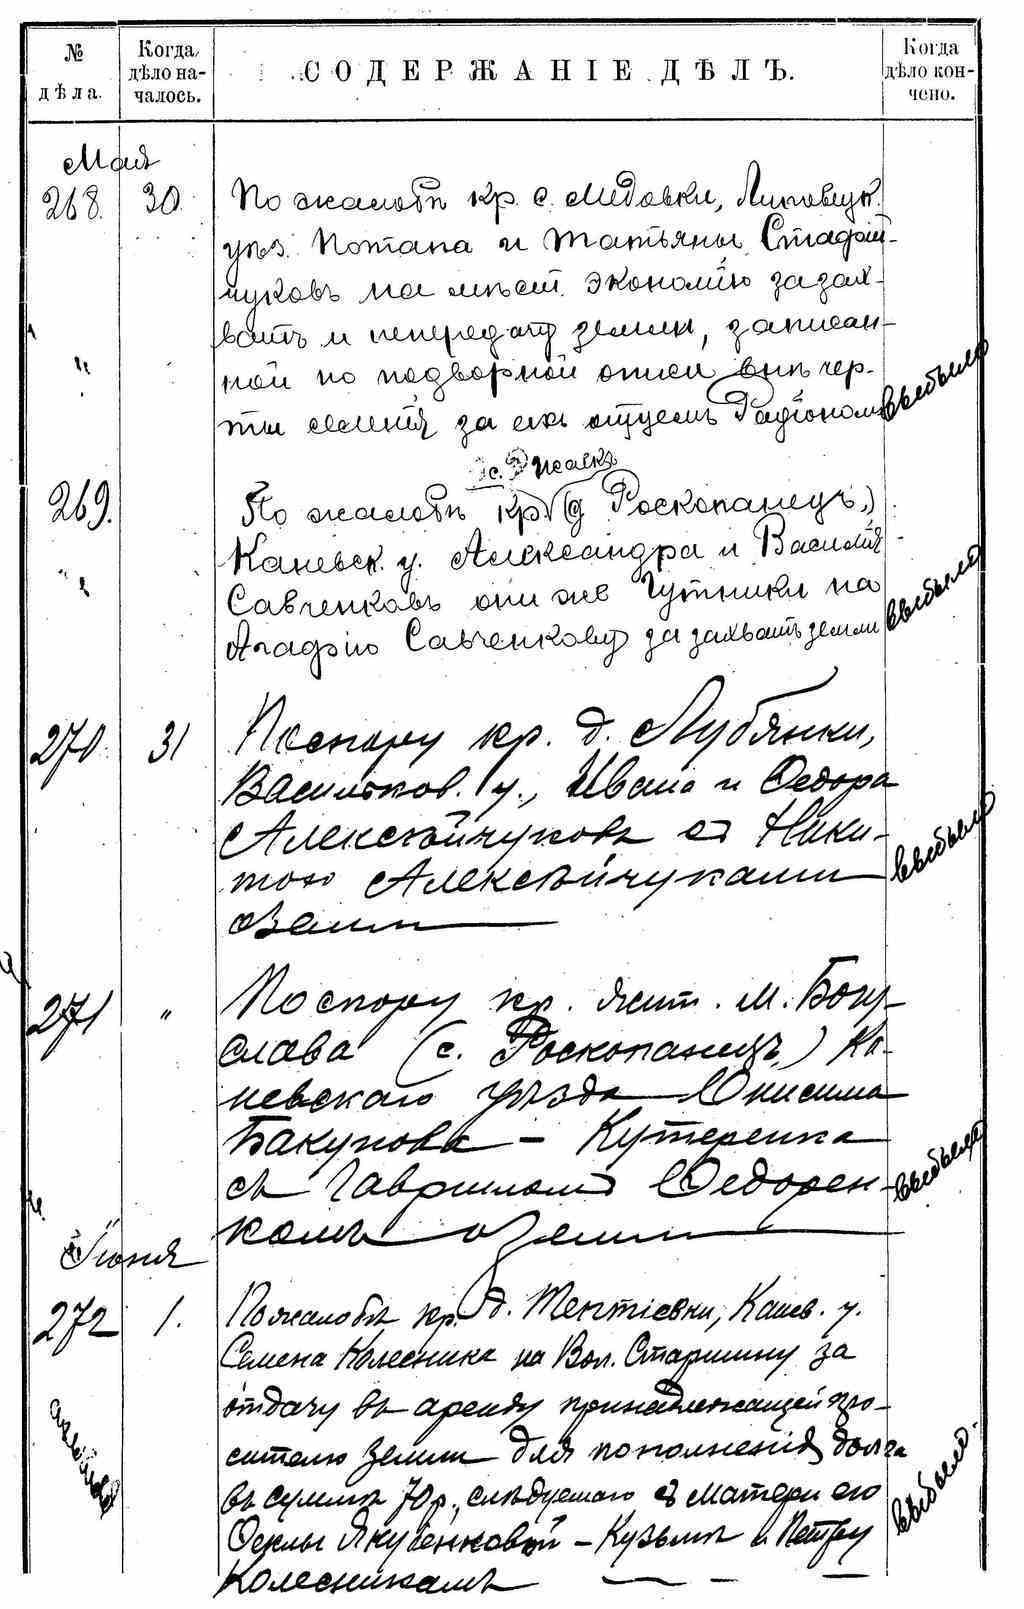 № дѣла.
Когда дѣло началось.
СОДЕРЖАНІЕ ДѢЛЪ.
Когда дѣло кончено.
Мая
268. 30. По жалобѣ кр. с. Медовки, Липовецк.
уѣз. Потапа и Татьяны Стафій-
чуковъ на мѣст. экономію за зах-
ватъ и непередачу земли, записан-
ной по подворной описи внѣ чер-
ты селенія за ихъ отцемъ Радіономъ
выбыло
с.
269. По жалобѣ кр. (д Роскопанецъ,)
Каневск. у. Александра и Василія
Савченковъ они же Гутники на
Агафію Савченкову за захватъ земли
выбыло
270. 31 По спору кр. д. Лубянки,
Васильков. у., Ивана и Федора
Алексѣйчуковъ съ Ники-
тою Алексѣйчуками
о земли
выбыло
271 " По спору кр. жит. м. Богу-
слава (с. Роскопанецъ) Ка-
невскаго уѣзда Онисима
Бакунова - Кутеренка
съ Гавриломъ Федорен-
комъ о земли
выбыло
Іюня
272 1. По жалобѣ кр. д. Тептіевки, Канев. у.
Семена Колесника на Вол. Старшину за
отдачу въ аренду принадлежащей про-
сителю земли для пополненія долга
въ суммѣ 70 р., слѣдуемаго съ матери его
Феклы Якубенковой - Кузьмѣ и Петру
Колесникамъ
выбыло.